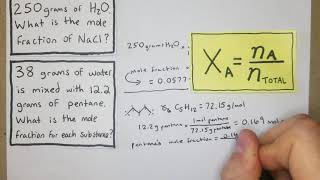 250 grams of H₂O.
What is the mole
fraction of NaCl?
38 grams of water
is mixed with 12.2
grams of pentane.
What is the mole
fraction for each substance?
250 grams H₂O ×
mole fraction =
0.0577
X_A = n_A / n_TOTAL
C₅H₁₂ = 72.15 g/mol
12.2 g pentane × 1 mol pentane / 72.15 g pentane = 0.169 mol
pentane's mole fraction =